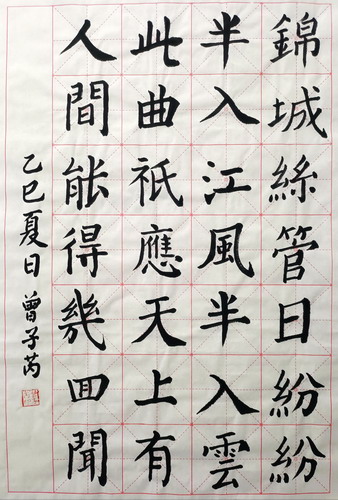 錦城絲管日紛紛
半入江風半入雲
此曲祇應天上有
人間能得幾回聞
乙巳夏日 曾子芮